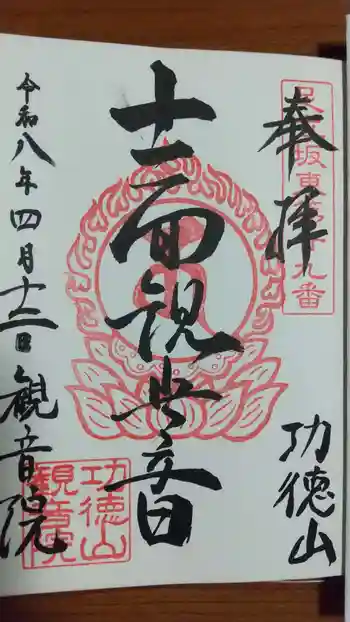 奉拝
功徳山
十一面観世音
令和八年四月十二日
観音院
功徳山
観音院